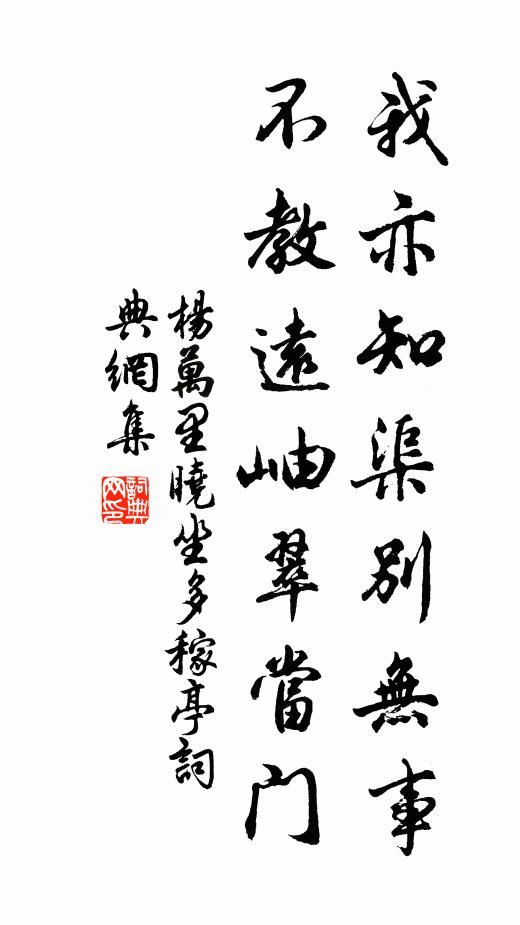 我亦知渠別無事
不教遠岫翠當门
楊萬里曉坐多稼亭詞
典網集
詞典网印